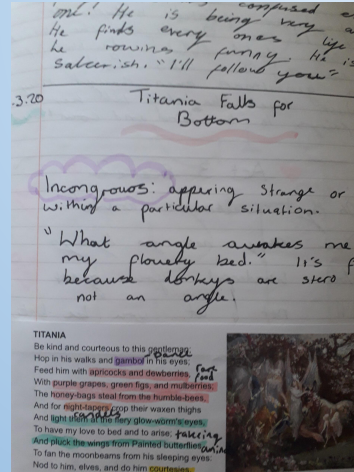 confused
one! He is being very a
He finds every ones
he funny. He is
"I'll follow you"
.3.20
Titania Falls for
Bottom
Incongrouos: appering strange or
within a particular situation.
"What angle awakes me
my flowery bed." It's f
because donkeys are stero
not an angle.
TITANIA
Be kind and courteous to this gentleman;
dance
Hop in his walks and gambol in his eyes;
rare
Feed him with apricocks and dewberries,
food
With purple grapes, green figs, and mulberries;
The honey-bags steal from the humble-bees,
And for night-tapers crop their waxen thighs
candles
And light them at the fiery glow-worm's eyes,
To have my love to bed and to arise;
And pluck the wings from Painted butterflies
To fan the moonbeams from his sleeping eyes:
Nod to him, elves, and do him courtesies.